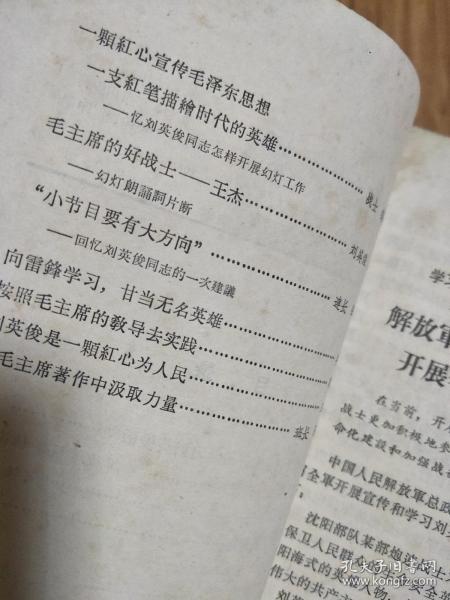 一顆紅心宣传毛泽东思想
一支紅笔描繪时代的英雄……战士
——忆刘英俊同志怎样开展幻灯工作
毛主席的好战士——王杰……刘英俊
——幻灯朗誦詞片断
“小节目要有大方向”……班长
——回忆刘英俊同志的一次建議
向雷鋒学习，甘当无名英雄……
按照毛主席的敎导去实践……
刘英俊是一顆紅心为人民……
毛主席著作中汲取力量……班长
学
解放軍
开展
在当前，开
战士更加积极地参
命化建設和加强战
中国人民解放軍总政
全軍开展宣传和学习刘
沈阳部队某部炮
保卫人民群众的生命安全
阳海式的英雄人物。
伟大的共产主
刘英
孔夫子旧书网